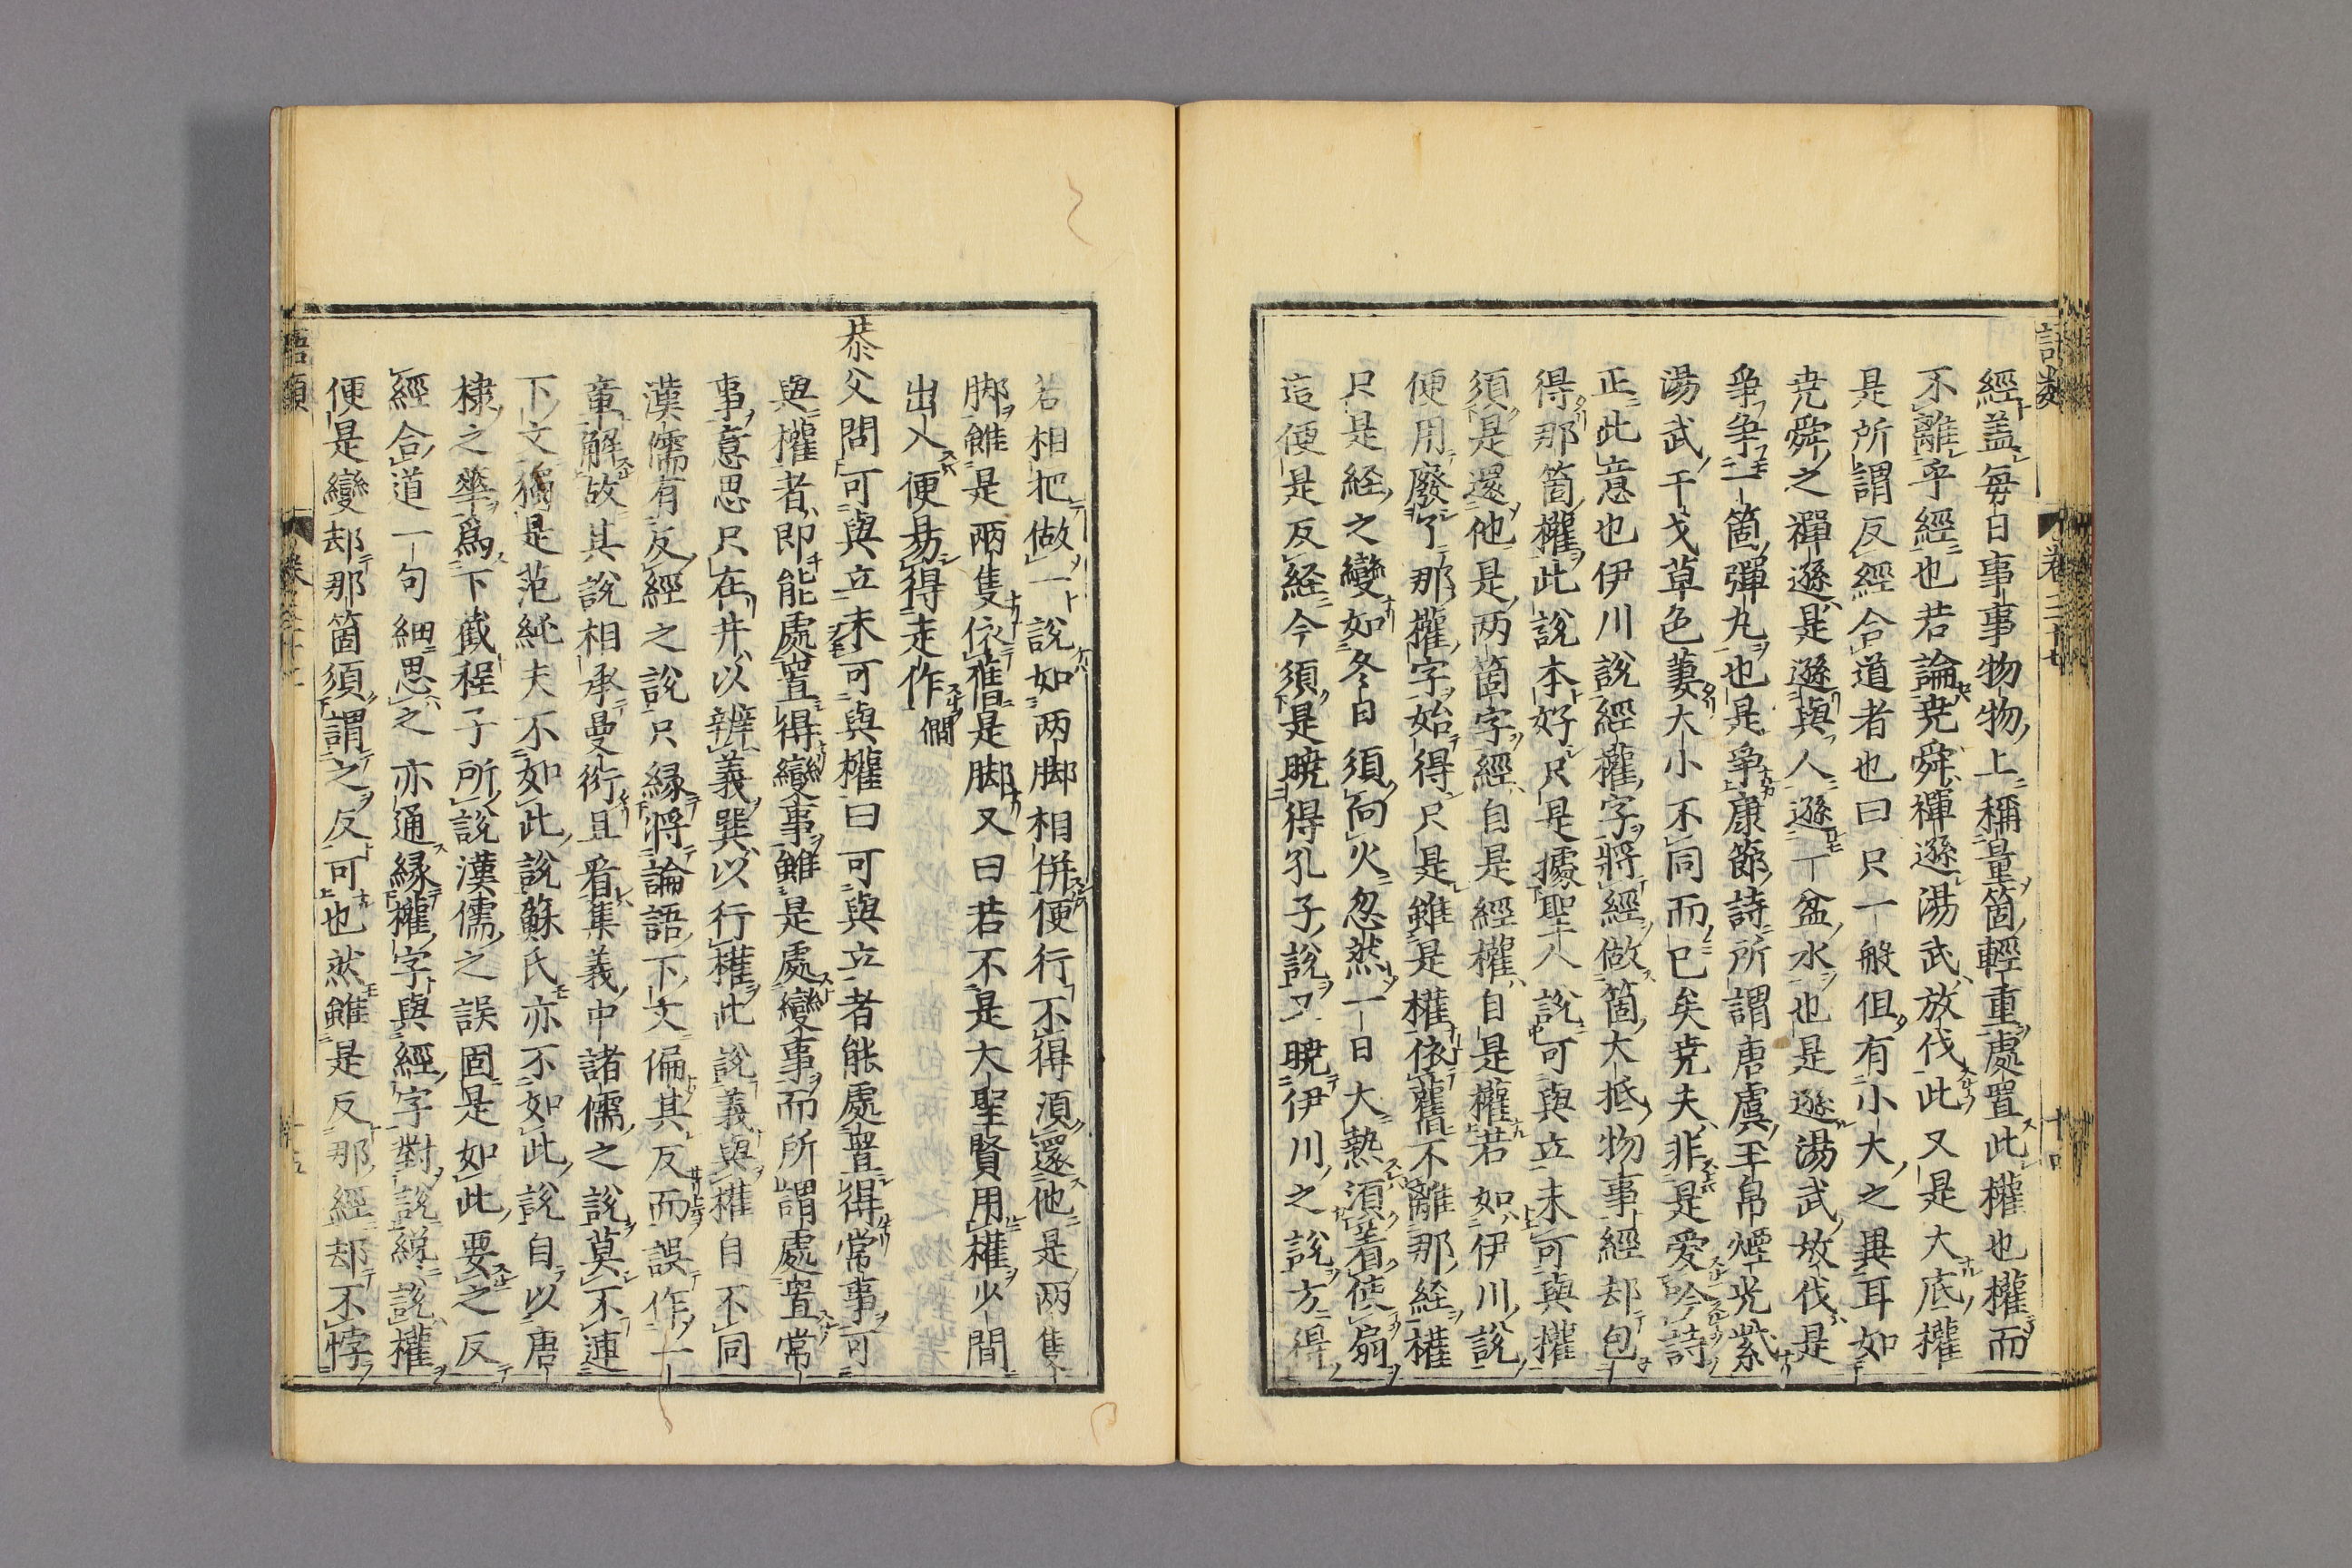 語類　卷三十七　十四
經盖毎日事事物物上稱量箇輕重處置此權也權而
不離乎經也若論尭舜禪遜湯武放伐此又是大底權
是所謂反經合道者也曰只一般但有小大之異耳如
尭舜之禪遜是遜與人遜一盆水也是遜湯武放伐是
爭争一箇彈丸也是爭康節詩所謂唐虞玉帛煙光紫
湯武干戈草色萋大小不同而已矣尭夫非是愛吟詩
正此意也伊川說經權字將經做箇大抵物事經却包
得那箇權此說本好只是據聖人說可與立未可與權
須是還他是两箇字經自是經權自是權若如伊川說
便用廢了那權字始得只是雖是權依舊不離那経權
只是経之變如冬日須向火忽然一日大熱須着使扇
這便是反経今須是曉得孔子說又曉伊川之說方得
若相把做一說如两脚相併便行不得須還他是两隻
脚雖是兩隻依舊是脚又曰若不是大聖賢用權少間
出入便易得走作僩
恭父問可與立未可與權曰可與立者能處置得常事可
與權者即能處置得變事雖是處變事而所謂處置常
事意思只在井以辨義巽以行權此說義與權自不同
漢儒有反經之說只緣將論語下文偏其反而誤作一
章解故其說相承曼衍且看集義中諸儒之說莫不連
下文獨是范純夫不如此說蘇氏亦不如此說自以唐
棣之華爲下截程子所說漢儒之誤固是如此要之反
經合道一句細思之亦通緣權字與經字對說纔說權
便是變却那箇須謂之反可也然雖是反那經却不悖
語類　卷三十七　十五